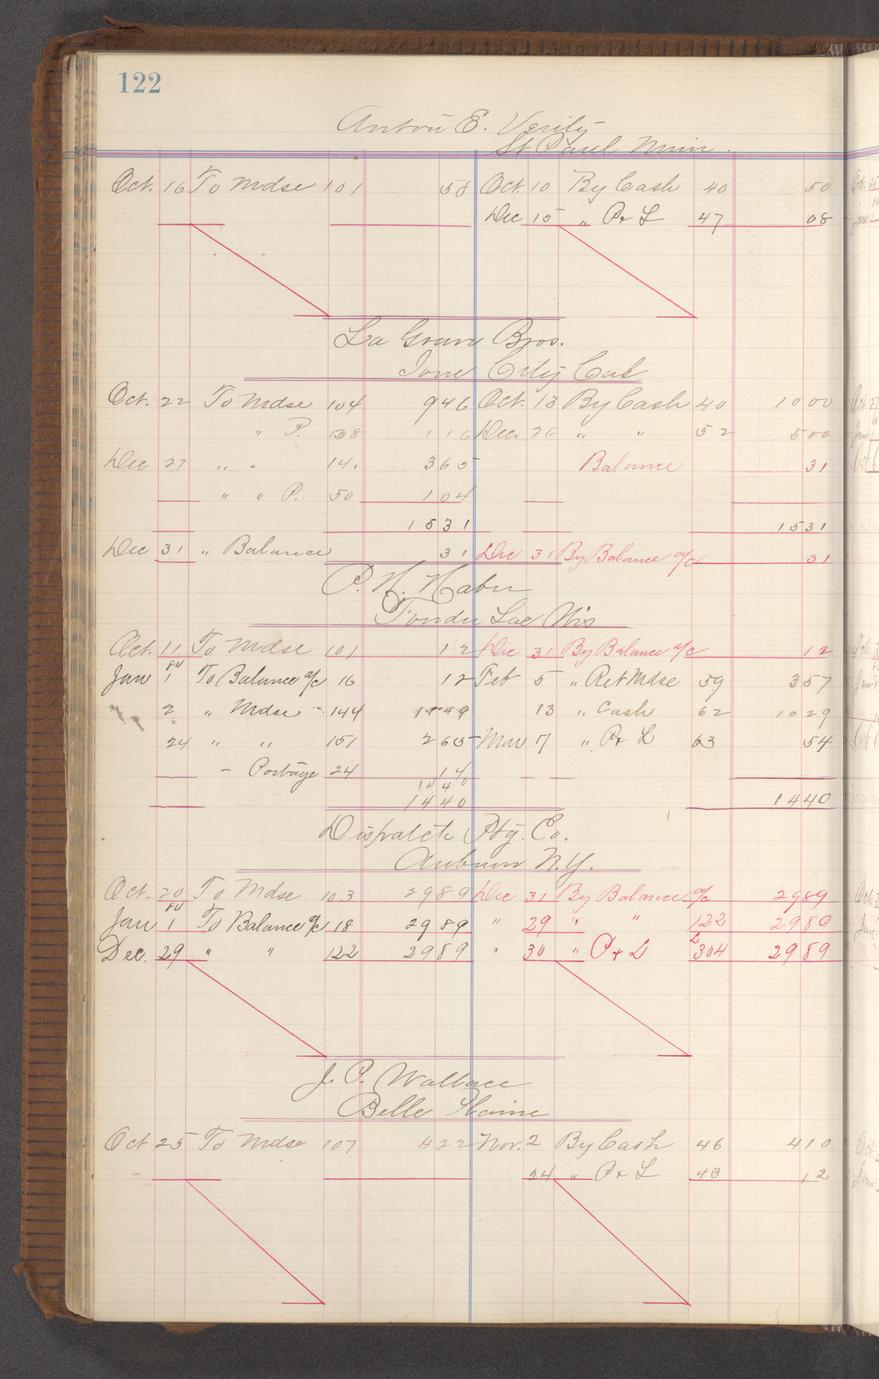 122
Anton E. Verity
St Paul Minn.
Oct. 16 To Mdse 101 58 Oct. 10 By Cash 40 50
Dec 15 " P & L 47 08
La Grave Bros.
Ione City Cal
Oct. 22 To Mdse 104 946 Oct. 13 By Cash 40 1000
" P. 38 116 Dec. 26 " " 52 500
Dec 27 " " 14. 365 Balance 31
" " P. 50 104
1531 1531
Dec 31 " Balance 31 Dec 31 By Balance a/c 31
P. H. Haber
Fondu Lac Wis
Oct. 11 To Mdse 101 12 Dec 31 By Balance a/c 12
84
Jan 1 To Balance a/c 16 12 Feb 5 " Ret Mdse 59 357
2 " Mdse 144 1149 13 " Cash 62 1029
24 " " 151 265 Mar 7 " P & L 63 54
- Postage 24 14
1440
1440 1440
Dispatch Ptg. Co.
Auburn N.Y.
Oct. 20 To Mdse 103 2989 Dec 31 By Balance a/c 2989
84
Jan 1 To Balance a/c 18 2989 " 29 " " 122 2989
Dec. 29 " " 122 2989 " 30 " P & L 304 2989
J. P. Wallace
Belle
Oct 25 To Mdse 107 422 Nov. 2 By Cash 46 410
24 " P & L 48 12